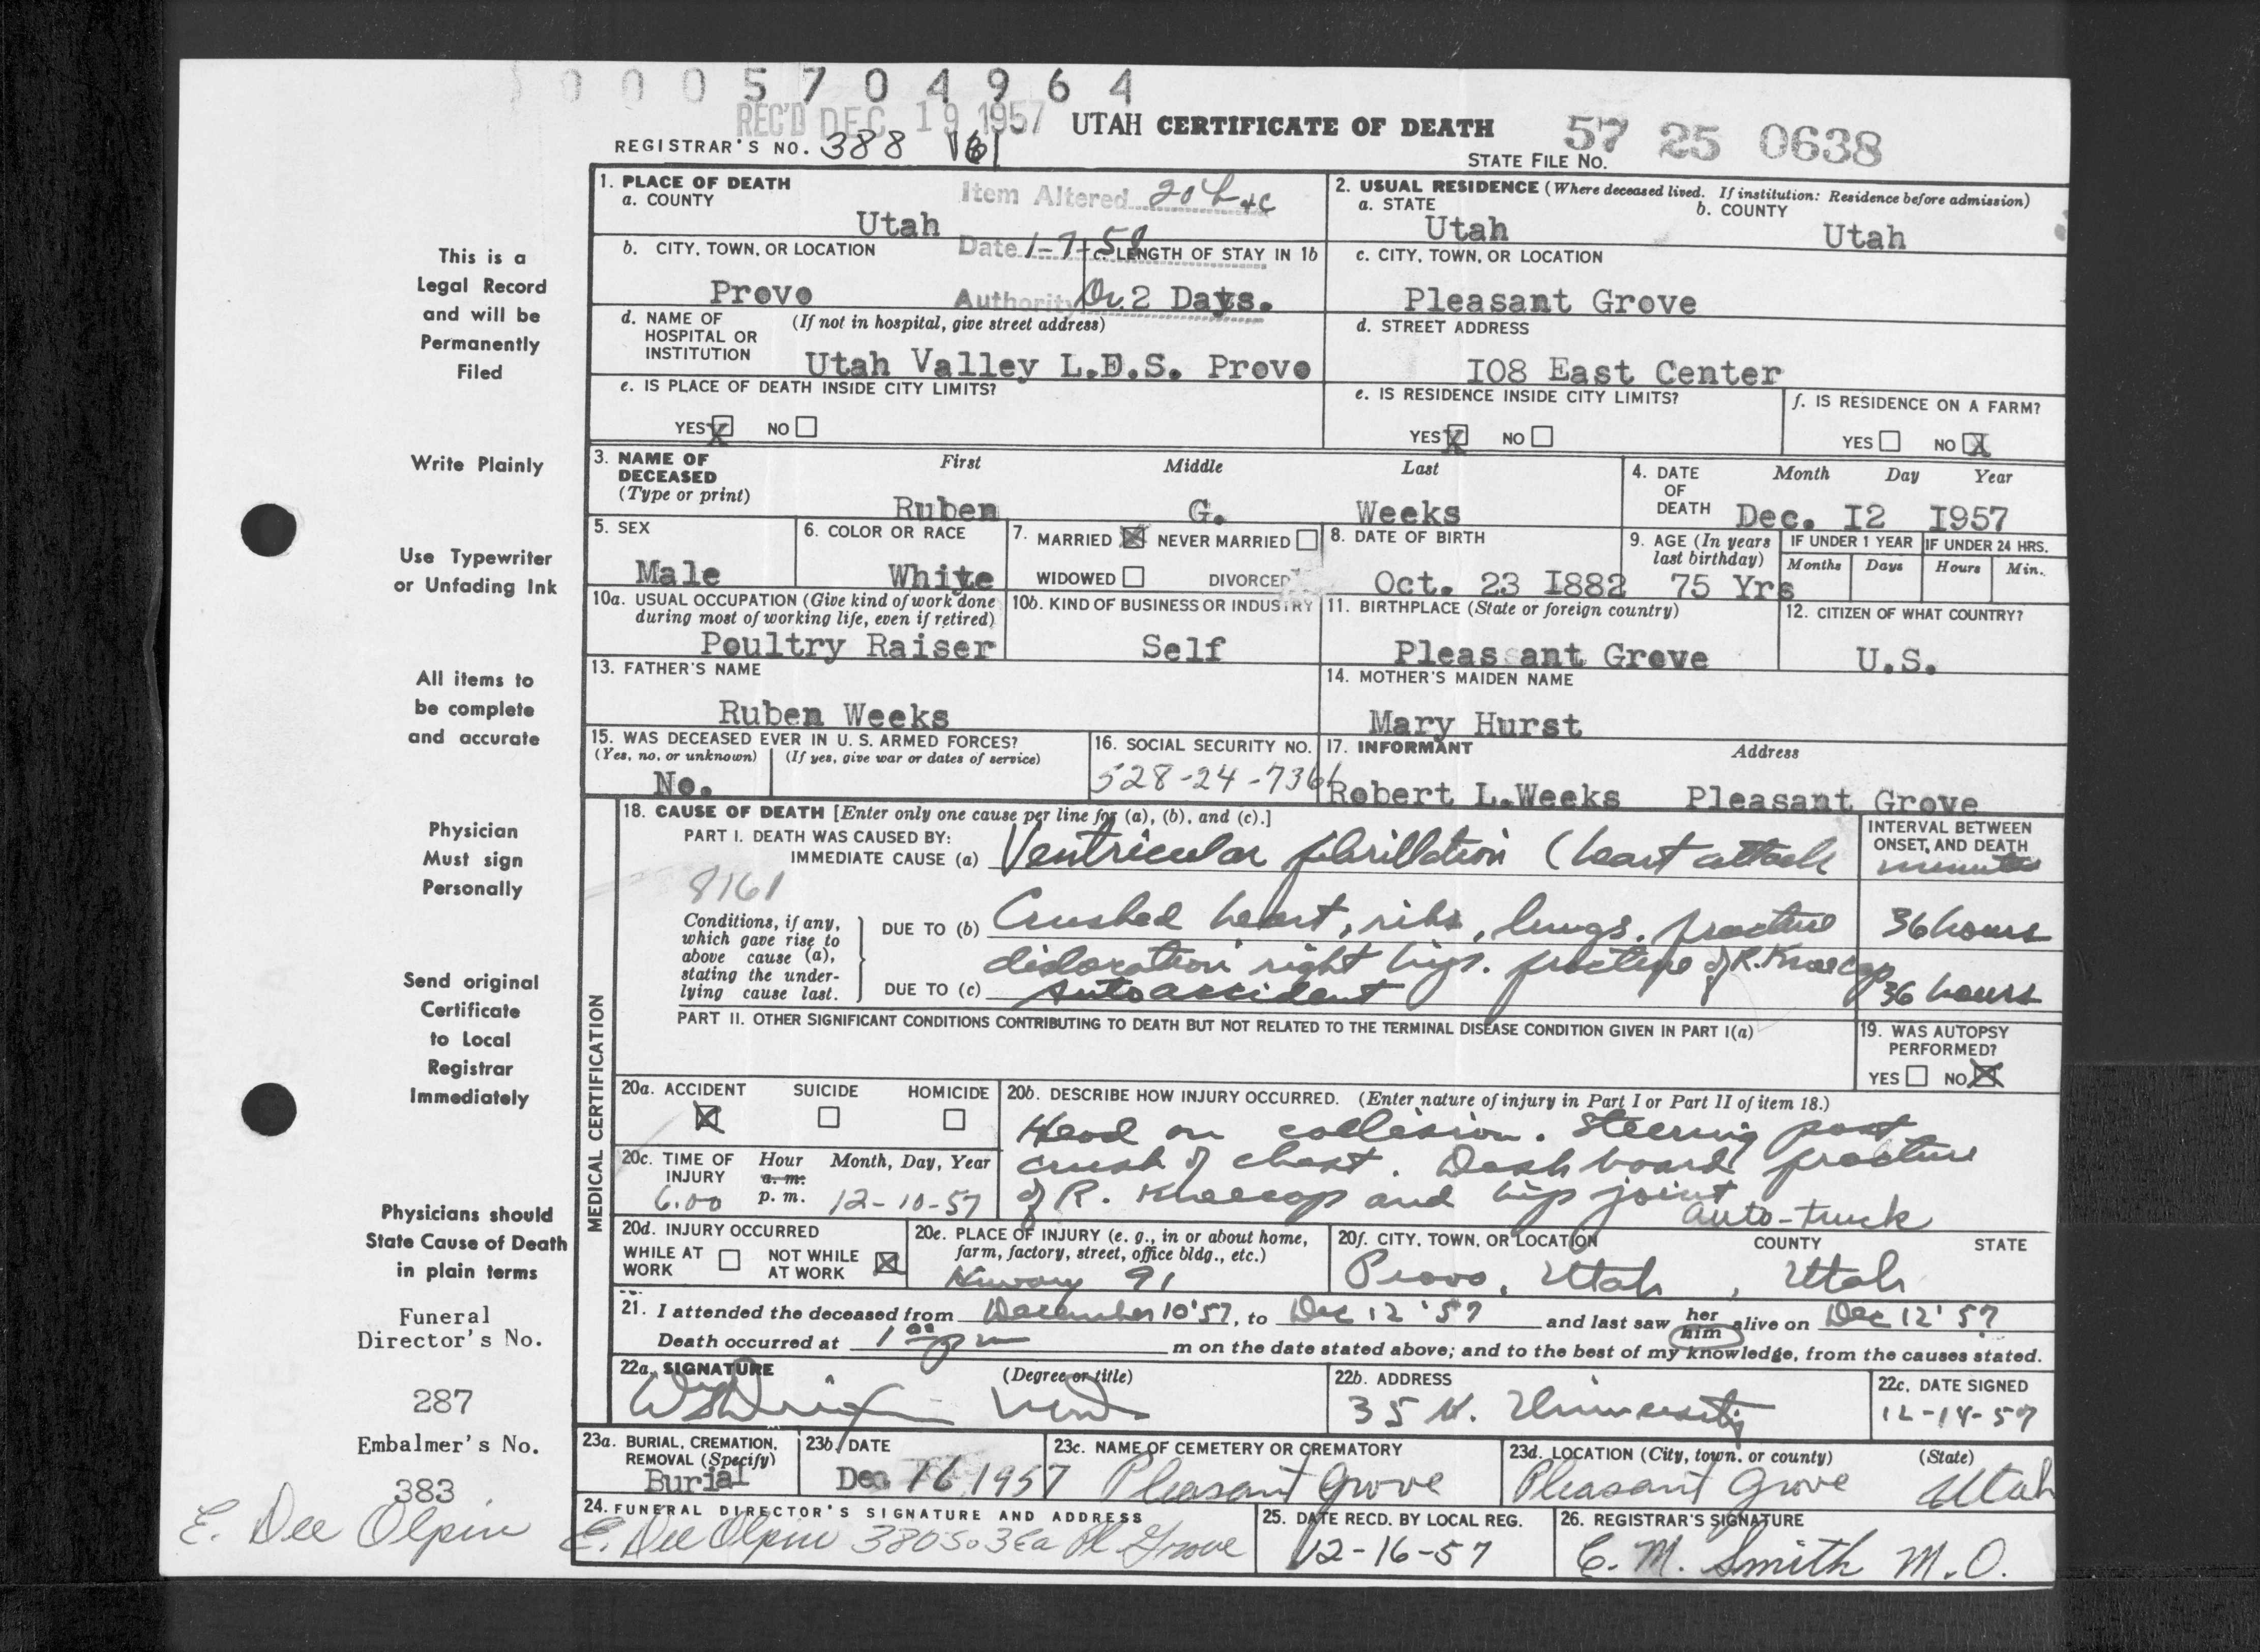 0005704964
REC'D DEC 19 1957 UTAH CERTIFICATE OF DEATH 57 25 0638
REGISTRAR'S NO. 388 STATE FILE NO.
1. PLACE OF DEATH
a. COUNTY
Utah
Item Altered 20
Date 1-7-58
Authority
2. USUAL RESIDENCE (Where deceased lived. If institution: Residence before admission)
a. STATE b. COUNTY
Utah Utah
b. CITY, TOWN, OR LOCATION
Provo
c. LENGTH OF STAY IN 1b
2 Days.
c. CITY, TOWN, OR LOCATION
Pleasant Grove
d. NAME OF (If not in hospital, give street address)
HOSPITAL OR
INSTITUTION
Utah Valley L.D.S. Provo
d. STREET ADDRESS
I08 East Center
e. IS PLACE OF DEATH INSIDE CITY LIMITS?
YES X NO
e. IS RESIDENCE INSIDE CITY LIMITS?
YES X NO
f. IS RESIDENCE ON A FARM?
YES NO X
3. NAME OF First Middle Last
DECEASED
(Type or print)
Ruben G. Weeks
4. DATE Month Day Year
OF
DEATH Dec. I2 I957
5. SEX
Male
6. COLOR OR RACE
White
7. MARRIED X NEVER MARRIED
WIDOWED DIVORCED
8. DATE OF BIRTH
Oct. 23 I882
9. AGE (In years
last birthday)
75 Yrs
IF UNDER 1 YEAR IF UNDER 24 HRS.
Months Days Hours Min.
10a. USUAL OCCUPATION (Give kind of work done
during most of working life, even if retired)
Poultry Raiser
10b. KIND OF BUSINESS OR INDUSTRY
Self
11. BIRTHPLACE (State or foreign country)
Pleasant Grove
12. CITIZEN OF WHAT COUNTRY?
U.S.
13. FATHER'S NAME
Ruben Weeks
14. MOTHER'S MAIDEN NAME
Mary Hurst
15. WAS DECEASED EVER IN U. S. ARMED FORCES?
(Yes, no, or unknown) (If yes, give war or dates of service)
No.
16. SOCIAL SECURITY NO.
528-24-7366
17. INFORMANT Address
Robert L.Weeks Pleasant Grove
MEDICAL CERTIFICATION
18. CAUSE OF DEATH [Enter only one cause per line for (a), (b), and (c).]
PART I. DEATH WAS CAUSED BY:
IMMEDIATE CAUSE (a) Ventricular fibrillation (heart attack
INTERVAL BETWEEN
ONSET AND DEATH
minutes
8161
Conditions, if any,
which gave rise to
above cause (a),
stating the under-
lying cause last.
DUE TO (b) Crushed heart, ribs, lungs. fracture 36 hours
dislocation right hip. fracture of R. Kneecap
DUE TO (c) Auto accident 36 hours
PART II. OTHER SIGNIFICANT CONDITIONS CONTRIBUTING TO DEATH BUT NOT RELATED TO THE TERMINAL DISEASE CONDITION GIVEN IN PART I(a)
19. WAS AUTOPSY
PERFORMED?
YES NO X
20a. ACCIDENT SUICIDE HOMICIDE
X
20b. DESCRIBE HOW INJURY OCCURRED. (Enter nature of injury in Part I or Part II of item 18.)
Head on collision. Steering post
crush of chest. Dash board fracture
of R. Kneecap and hip joint
auto-truck
20c. TIME OF Hour Month, Day, Year
INJURY a. m.
6:00 p. m. 12-10-57
20d. INJURY OCCURRED
WHILE AT WORK NOT WHILE AT WORK X
20e. PLACE OF INJURY (e. g., in or about home,
farm, factory, street, office bldg., etc.)
Hiway 91
20f. CITY, TOWN, OR LOCATION COUNTY STATE
Provo, Utah, Utah
21. I attended the deceased from December 10 '57, to Dec 12 '57 and last saw her him alive on Dec 12 '57
Death occurred at 1 00 pm m on the date stated above; and to the best of my knowledge, from the causes stated.
22a. SIGNATURE (Degree or title)
22b. ADDRESS
35 N. University
22c. DATE SIGNED
12-14-57
23a. BURIAL, CREMATION,
REMOVAL (Specify)
Burial
23b. DATE
Dec 16 1957
23c. NAME OF CEMETERY OR CREMATORY
Pleasant Grove
23d. LOCATION (City, town, or county) (State)
Pleasant Grove Utah
24. FUNERAL DIRECTOR'S SIGNATURE AND ADDRESS
E. Dee Olpin 380 So 3 Ea Pl Grove
25. DATE RECD. BY LOCAL REG.
12-16-57
26. REGISTRAR'S SIGNATURE
C. M. Smith M.D.
This is a
Legal Record
and will be
Permanently
Filed
Write Plainly
Use Typewriter
or Unfading Ink
All items to
be complete
and accurate
Physician
Must sign
Personally
Send original
Certificate
to Local
Registrar
Immediately
Physicians should
State Cause of Death
in plain terms
Funeral
Director's No.
287
Embalmer's No.
383
E. Dee Olpin